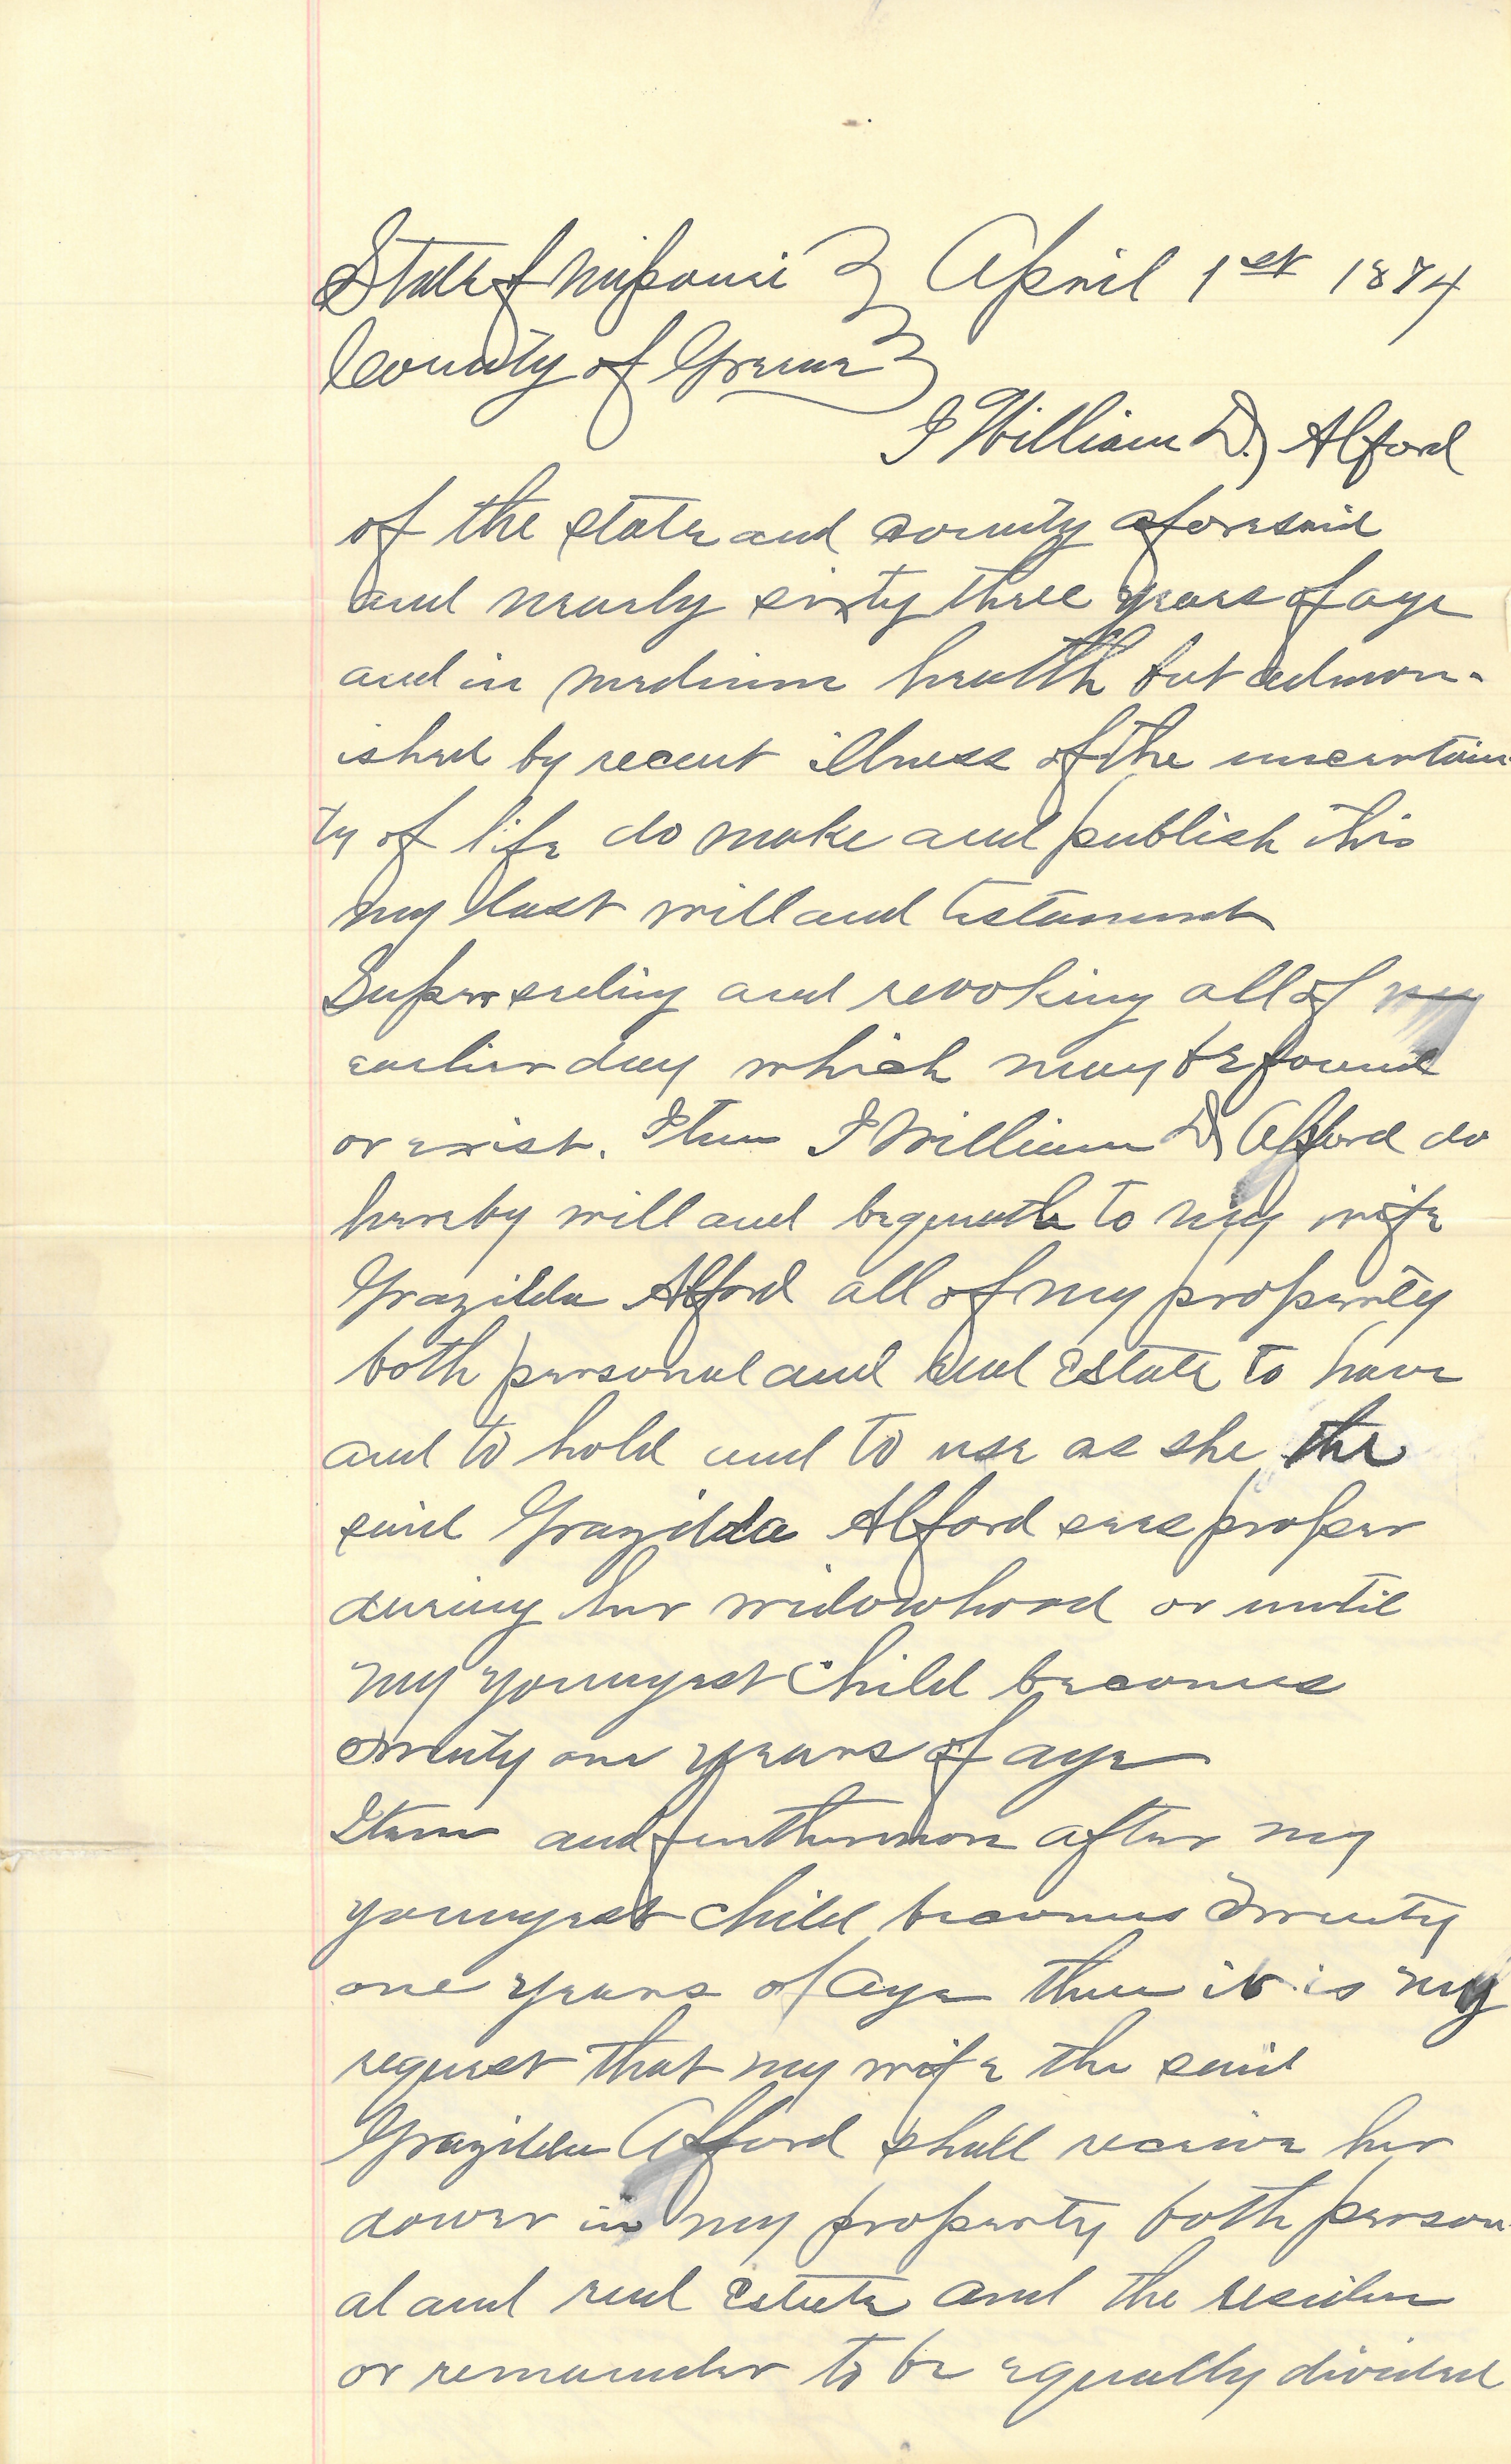 State of Missouri } April 1st 1874
County of Greene }
I William D. Alford
of the state and county aforesaid
and nearly sixty three years of age
and in medium health but admon-
ished by recent illness of the uncertain-
ty of life do make and publish this
my last will and testament
Superseding and revoking all of my
earlier day which may be found
or exist. Item I William D Alford do
hereby will and bequeath to my wife
Grazilda Alford all of my property
both personal and real Estate to have
and to hold and to use as she the
said Grazilda Alford sees proper
during her widowhood or until
my youngest child becomes
twenty one years of age
Item and furthermore after my
youngest child becomes Twenty
one years of age then it is my
request that my wife the said
Grazilda Alford shall receive her
dower in my property both person-
al and real Estate and the residue
or remainder to be equally divided